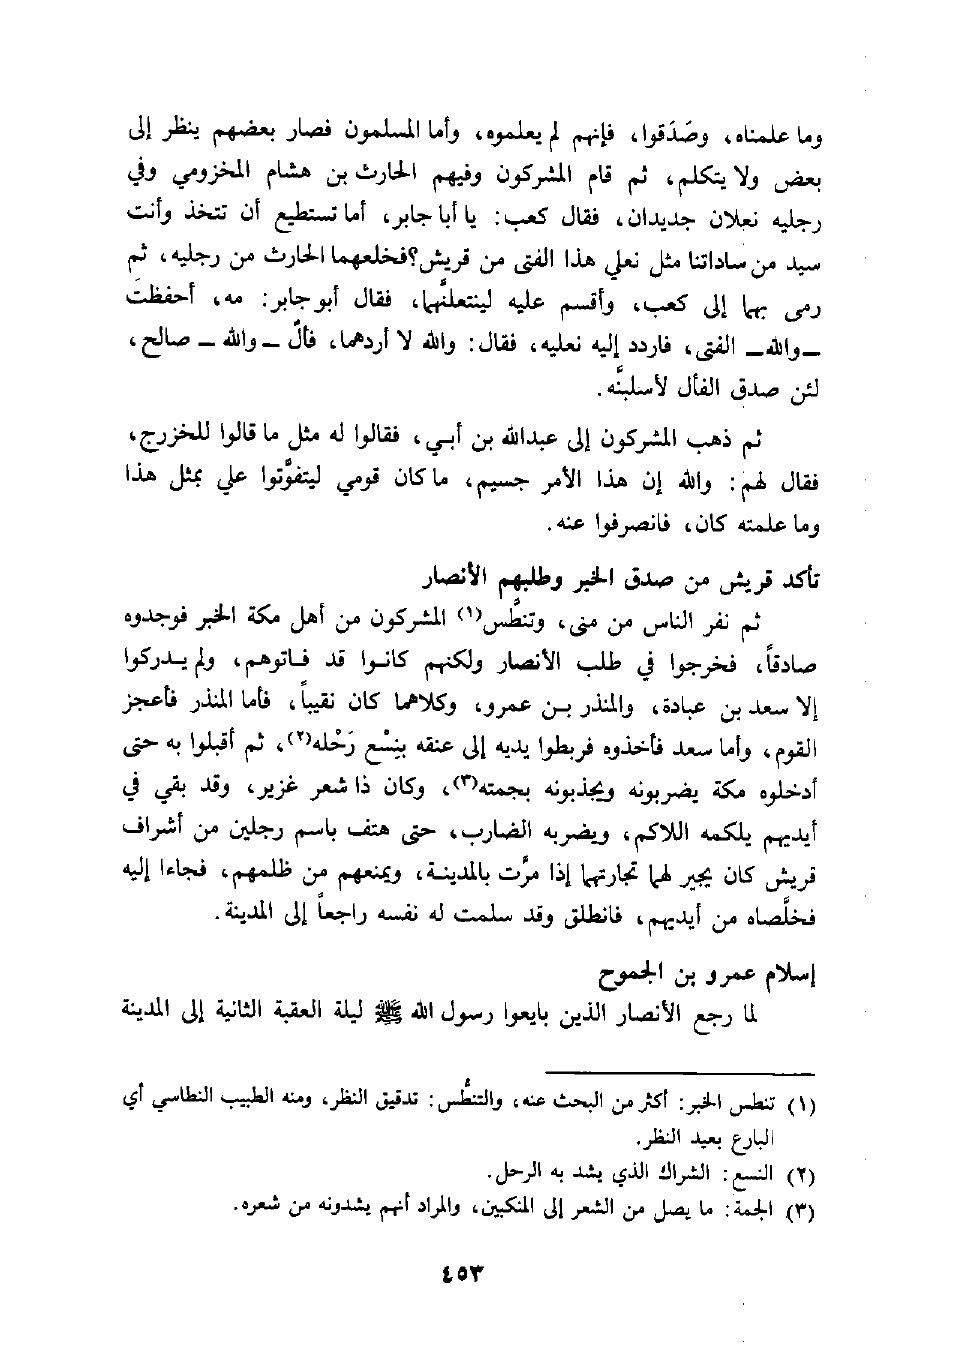 وما علمناه، وصَدَقوا، فإنهم لم يعلموه، وأما المسلمون فصار بعضهم ينظر إلى
بعض ولا يتكلم، ثم قام المشركون وفيهم الحارث بن هشام المخزومي وفي
رجليه نعلان جديدان، فقال كعب: يا أبا جابر، أما تستطيع أن تتخذ وأنت
سيد من ساداتنا مثل نعلي هذا الفتى من قريش؟ فخلعهما الحارث من رجليه، ثم
رمى بهما إلى كعب، وأقسم عليه لينتعلنَّهما، فقال أبو جابر: مه، أحفظتَ
ــ والله ــ الفتى، فاردد إليه نعليه، فقال: والله لا أردهما، فألٌ ــ والله ــ صالح،
لئن صدق الفأل لأسلبنَّه.
ثم ذهب المشركون إلى عبدالله بن أبي، فقالوا له مثل ما قالوا للخزرج،
فقال لهم: والله إن هذا الأمر جسيم، ما كان قومي ليتفوَّتوا علي بمثل هذا
وما علمته كان، فانصرفوا عنه.
تأكد قريش من صدق الخبر وطلبهم الأنصار
ثم نفر الناس من منى، وتنطَّس(١) المشركون من أهل مكة الخبر فوجدوه
صادقاً، فخرجوا في طلب الأنصار ولكنهم كانوا قد فاتوهم، ولم يدركوا
إلا سعد بن عبادة، والمنذر بن عمرو، وكلاهما كان نقيباً، فأما المنذر فأعجز
القوم، وأما سعد فأخذوه فربطوا يديه إلى عنقه بنِسْع رَحْله(٢)، ثم أقبلوا به حتى
أدخلوه مكة يضربونه ويجذبونه بجمته(٣)، وكان ذا شعر غزير، وقد بقي في
أيديهم يلكمه اللاكم، ويضربه الضارب، حتى هتف باسم رجلين من أشراف
قريش كان يجير لهما تجارتهما إذا مرَّت بالمدينة، ويمنعهم من ظلمهم، فجاءا إليه
فخلَّصاه من أيديهم، فانطلق وقد سلمت له نفسه راجعاً إلى المدينة.
إسلام عمرو بن الجموح
لما رجع الأنصار الذين بايعوا رسول الله ﷺ ليلة العقبة الثانية إلى المدينة
(١) تنطس الخبر: أكثر من البحث عنه، والتنطُّس: تدقيق النظر، ومنه الطبيب النطاسي أي
البارع بعيد النظر.
(٢) النسع: الشراك الذي يشد به الرحل.
(٣) الجمة: ما يصل من الشعر إلى المنكبين، والمراد أنهم يشدونه من شعره.
٤٥٣